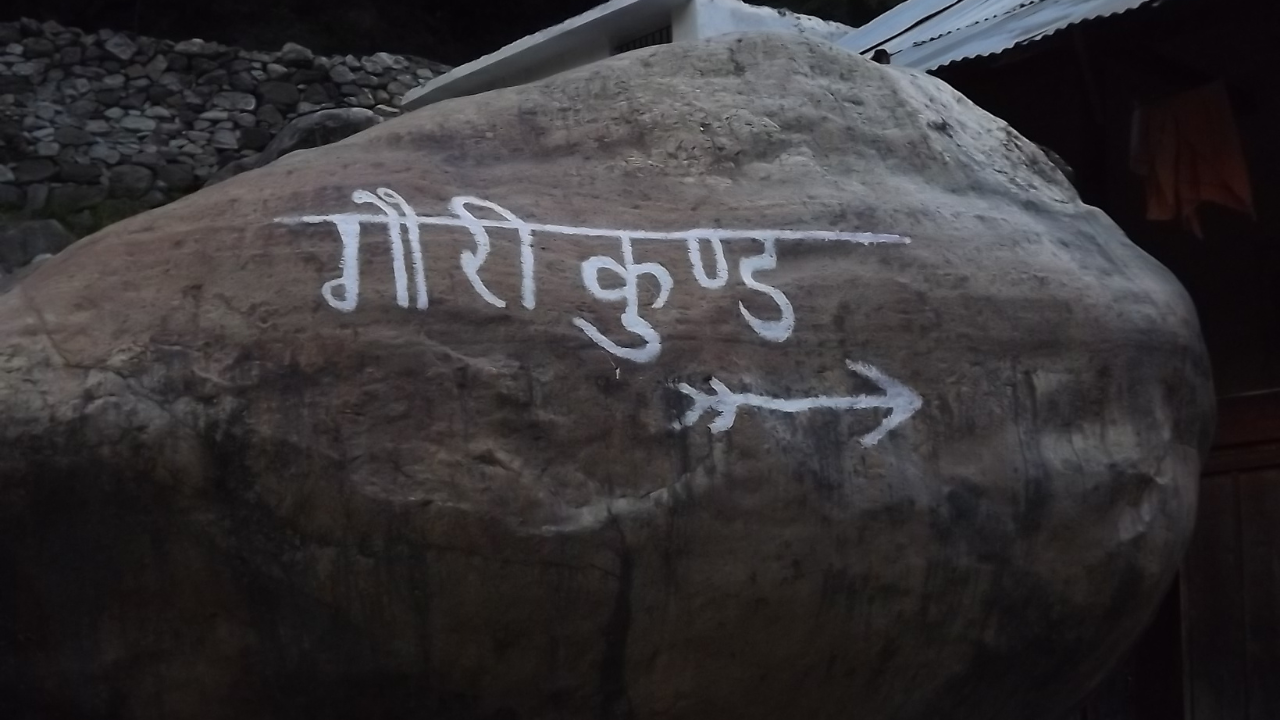 गौरी कुण्ड